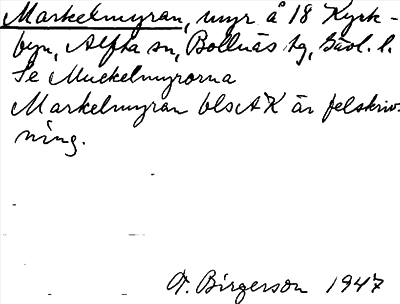 Markelmyran, myr å 18 Kyrk-
byn, Alfta sn, Bollnäs tg, Gävl. l.
Se Muckelmyrorna
Markelmyran bl s AK är felskriv-
ning.
A. Birgerson 1947